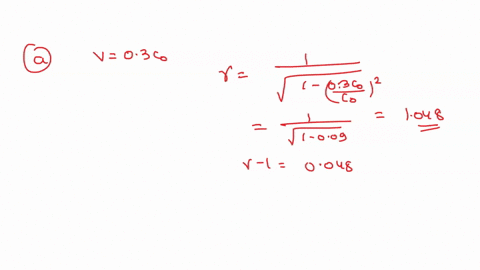 (a) v = 0.3c₀
γ = 1 / √(1 - (0.3c₀/c₀)²)
= 1 / √(1 - 0.09) = 1.048
γ - 1 = 0.048